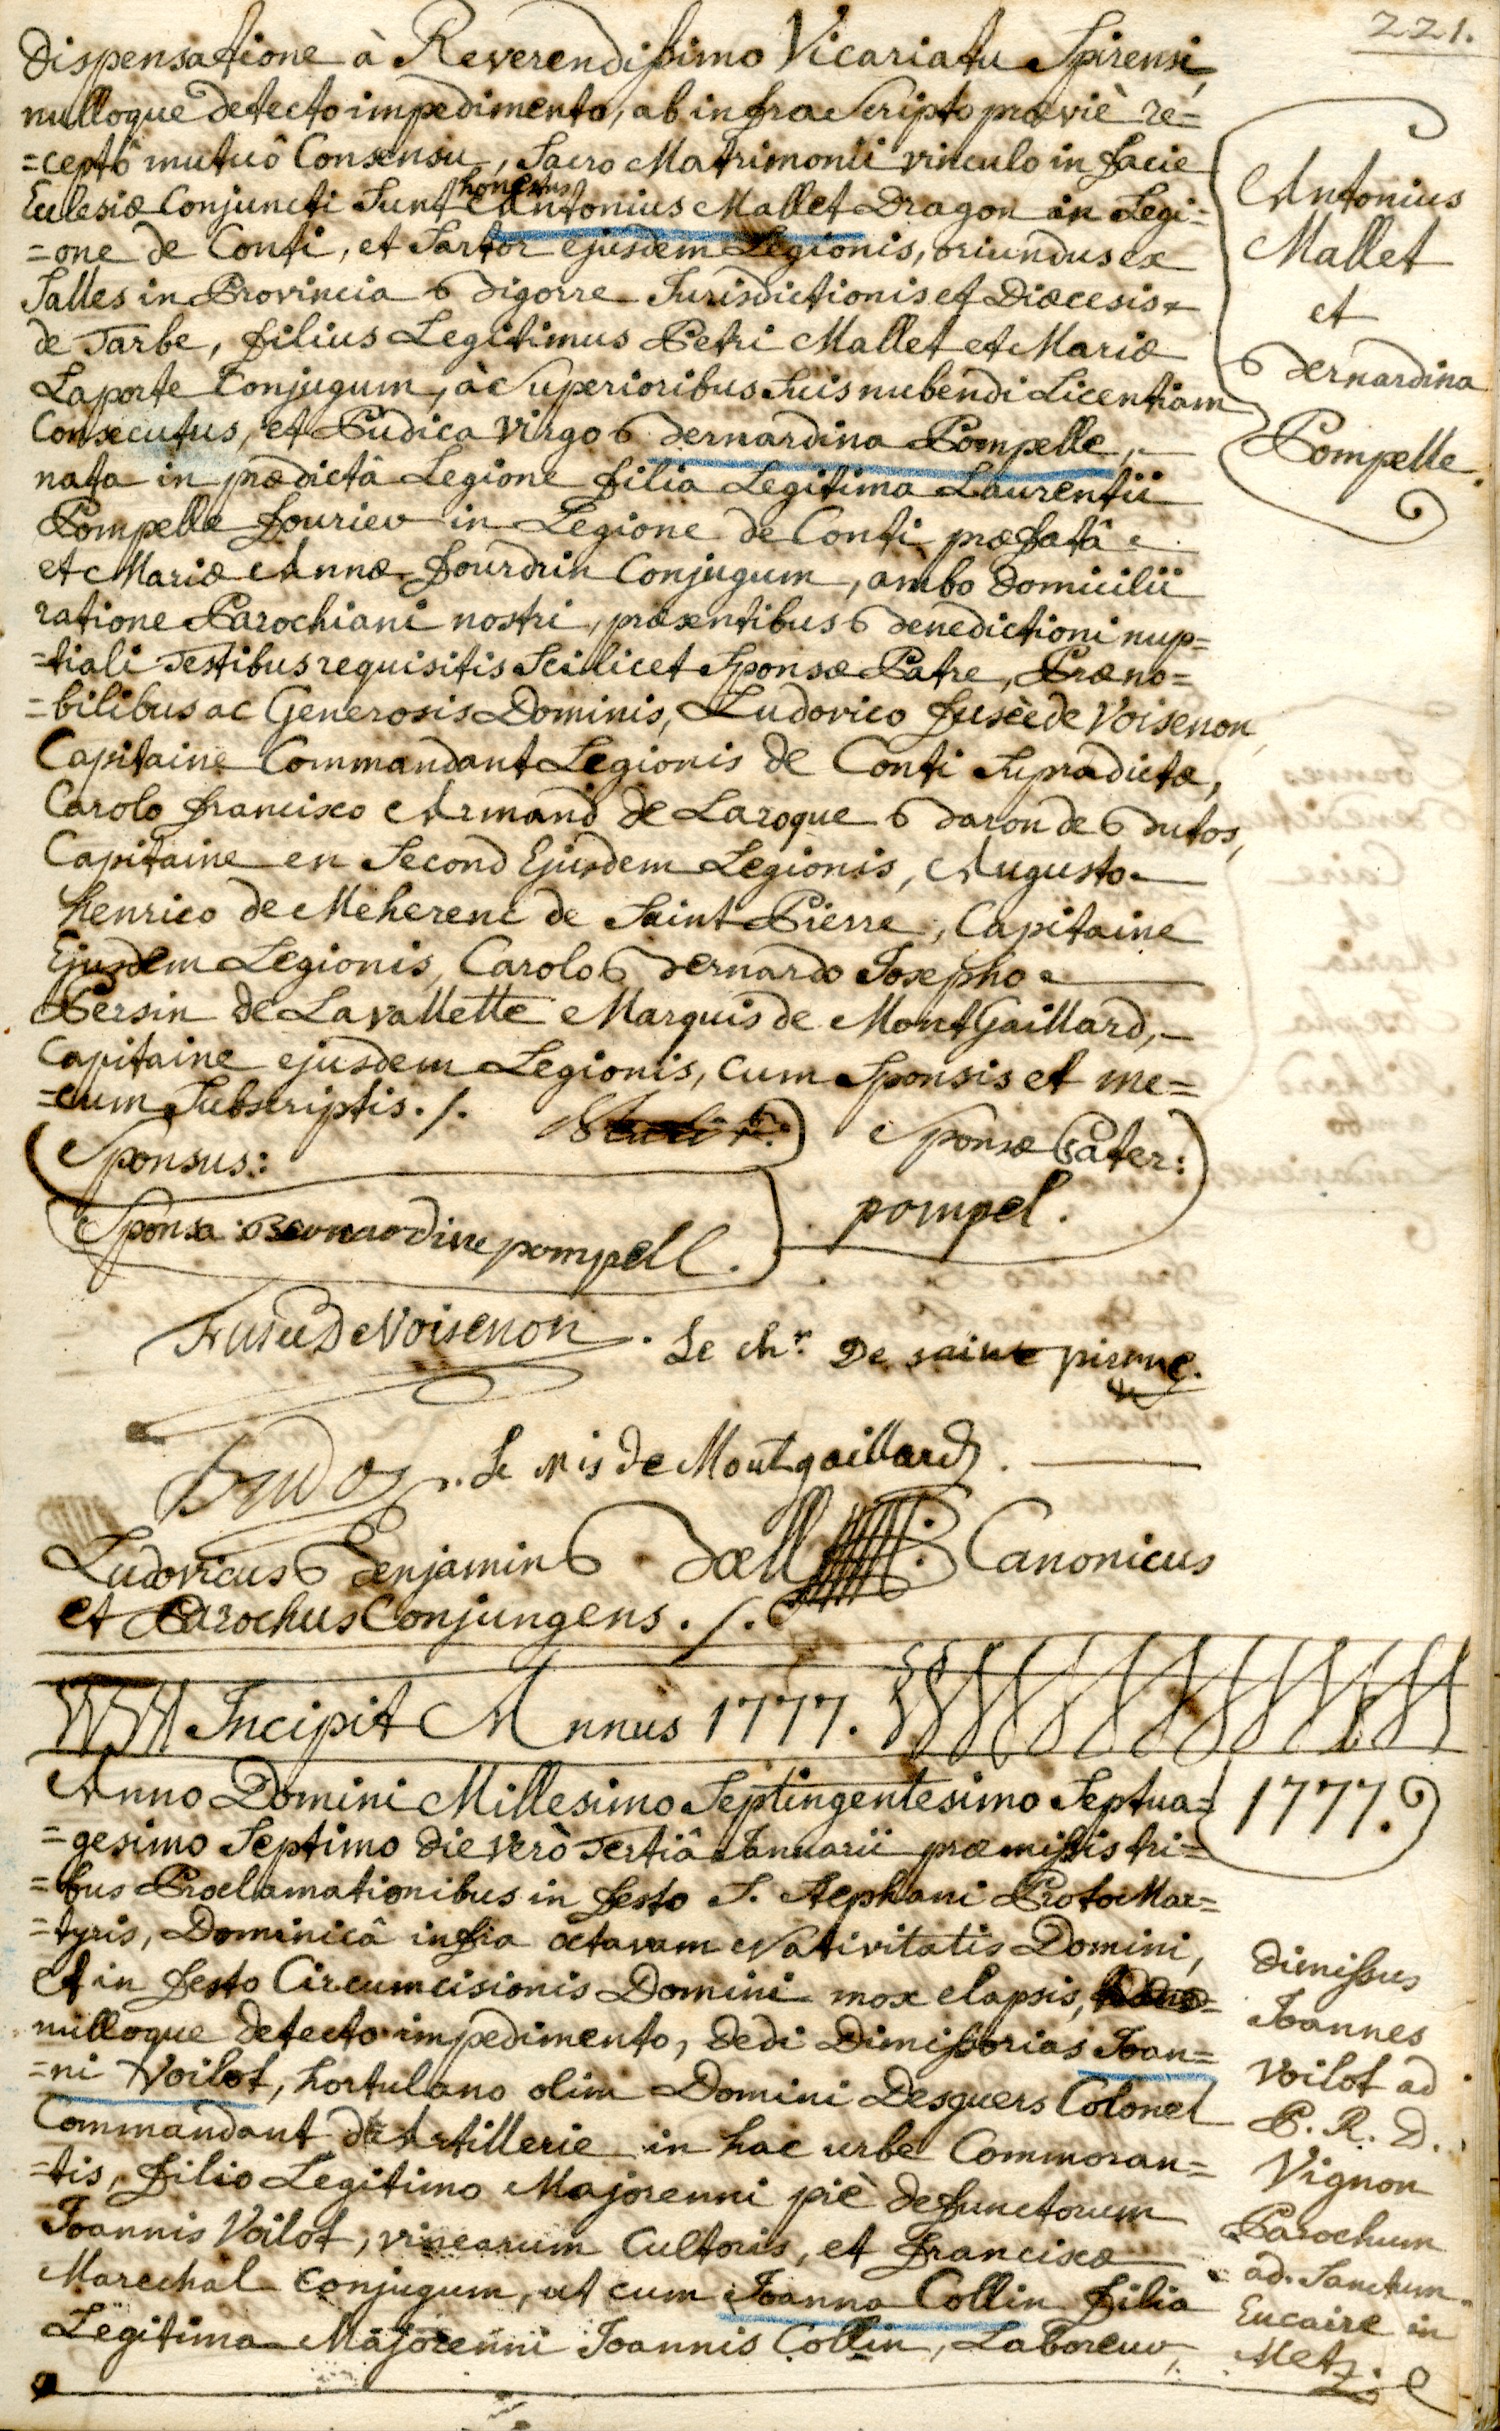 221.
Dispensatione à Reverendissimo Vicariatu Spirensi,
nulloque detecto impedimento, ab infra Scripto præviè re=
=ceptô mutuô Consensu, Sacro Matrimonii vinculo in facie
Eclesiæ Conjuncti Sunt honestus Antonius Mallet Dragon in Legi=
=one de Conti, et Sartor ejusdem Legionis, oriundus ex
Salles in Provincia Bigorre Jurisdictionis et Diœcesis
de Tarbe, filius Legitimus Petri Mallet et Mariæ
Laporte Conjugum, à Superioribus Suis nubendi Licentiam
Consecutus, et Pudica Virgo Bernardina Pompelle,
nata in prædictâ Legione filia Legitima Laurentii
Pompelle fourier in Legione de Conti præfatâ
et Mariæ Annæ fourdrin Conjugum, ambo Domicilii
ratione Parochiani nostri, præsentibus Benedictioni nup=
=tiali Testibus requisitis Scilicet Sponsæ Patre, Præno=
=bilibus ac Generosis Dominis, Ludovico fusèe de Voisenon,
Capitaine Commandant Legionis de Conti Supradictæ,
Carolo francisco Armand de Laroque Baron de Budos,
Capitaine en Second Ejusdem Legionis, Augusto
henrico de Meherenc de Saint Pierre, Capitaine
Ejusdem Legionis, Carolo Bernardo Josepho
Persin de Lavallette Marquis de MontGaillard,
Capitaine ejusdem Legionis, cum Sponsis et me=
=cum Subscriptis ./.
Antonius
Mallet
et
Bernardina
Pompelle.
Sponsus:
Sponsæ Pater:
pompel.
Sponsa: Bernardine pompell.
Fusée De Voisenon.
Le chr. De saint pierre.
Budos
Le Mis de Montgaillard.
Ludovicus Benjamin Dœll Canonicus
et Parochus Conjungens ./.
Incipit Annus 1777.
Anno Domini Millesimo Septingentesimo Septua=
=gesimo Septimo die verò Tertiâ Januarii præmissis tri=
=bus Proclamationibus in festo S. Stephani ProtoMar=
=tyris, Dominicâ infra octavam Nativitatis Domini,
et in festo Circumcisionis Domini mox elapsis,
nulloque detecto impedimento, dedi Dimissorias Joan=
=ni Voilot, hortulano olim Domini Desguers Colonel
Commandant d'Artillerie in hac urbe Commoran=
=tis, filio Legitimo Majorenni piè defunctorum
Joannis Voilot, vinearum Cultoris, et franciscæ
Marechal Conjugum, ut cum Joanna Collin filia
Legitima Majorenni Joannis Collin, Laboreur,
1777.
dimissus
Joannes
Voilot ad
P. R. D.
Vignon
Parochum
ad Sanctum
Eucaire in
Metz.